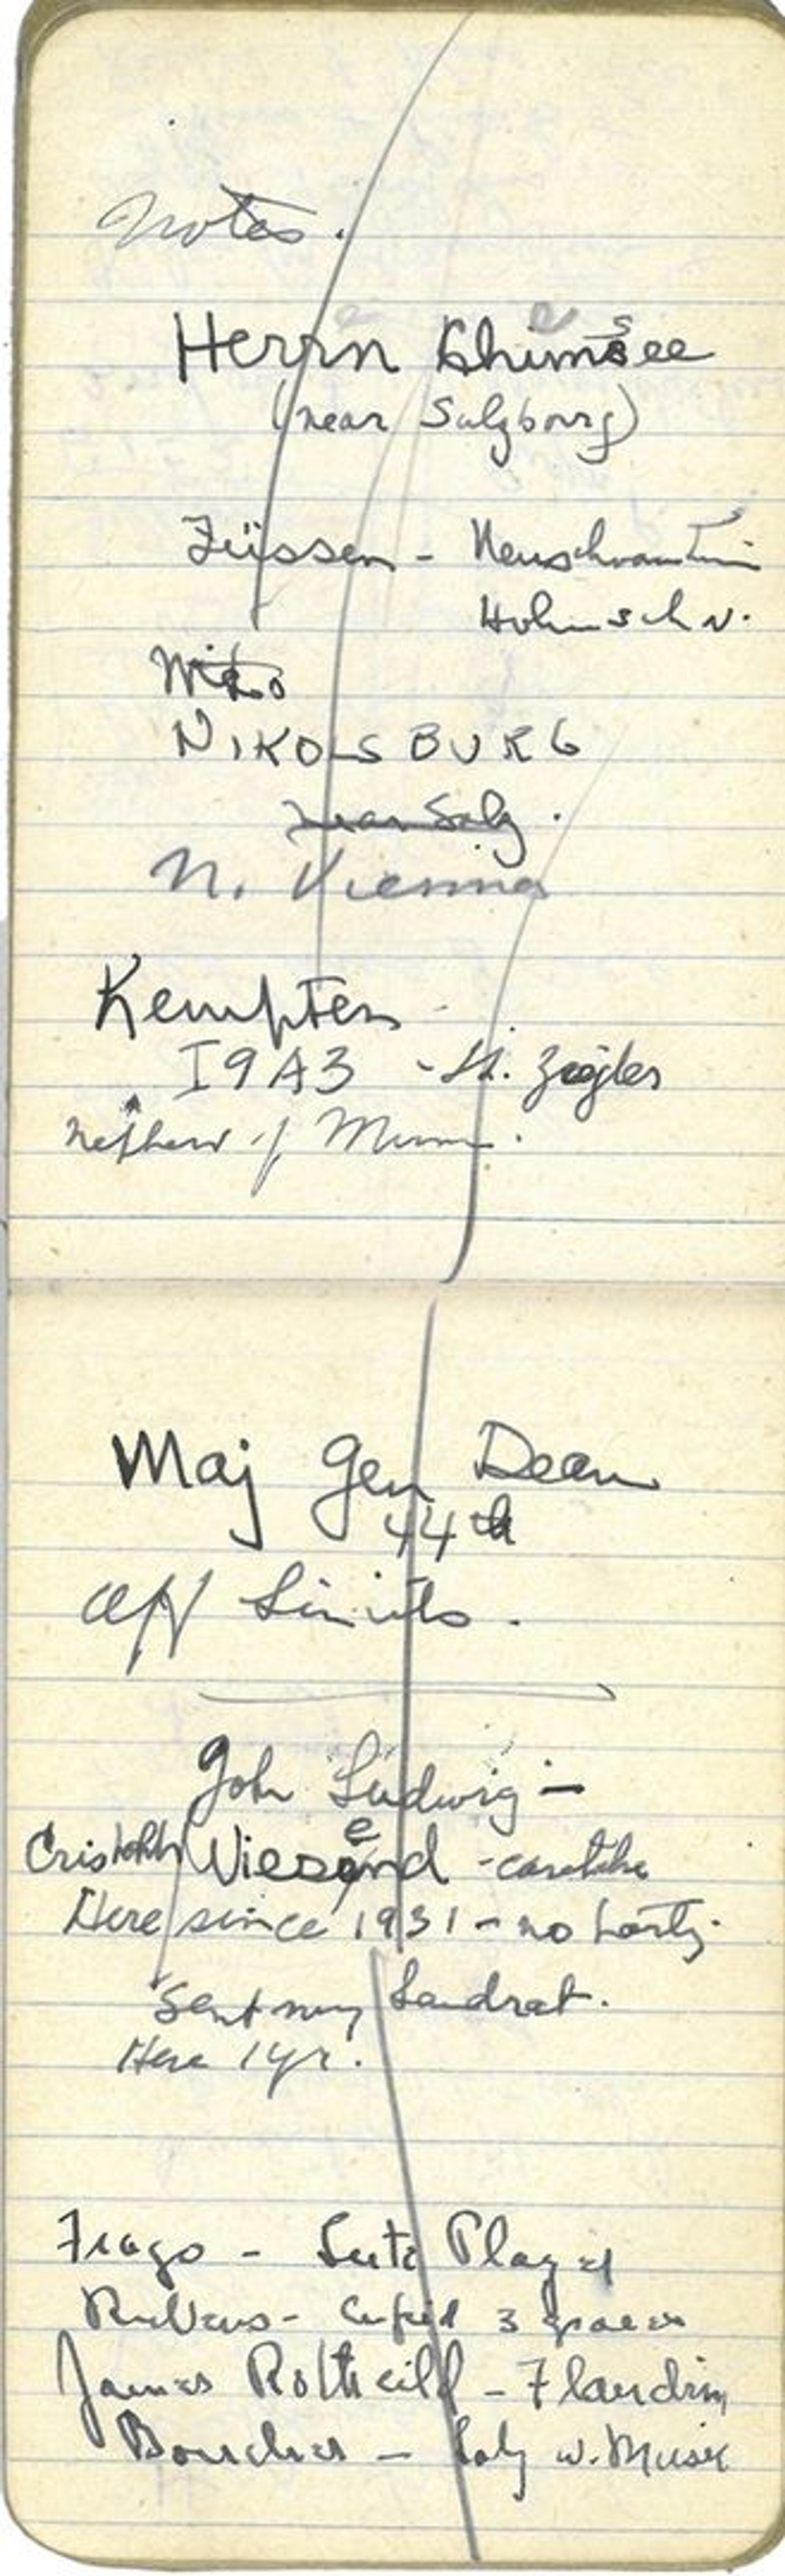 Notes.
Herrn Chimsee
(near Salzbourg)
Füssen - Neuschwanstein
Hohnschw.
NIKOLSBURG
near Salz.
N. Vienna
Kempten
1943 - H. Zeigler
Nephew of Mumm.
Maj Gen Dean
44th
Off Limits.
John Ludwig -
Cristoph Wiesend - caretaker
Here since 1931 - no party.
Sent my Landrat.
Here 1 yr.
Frago - Lute Player
Rubens - Cupid 3 graces
James Rothscild - Flandrin
Boucher - Lady w. Music